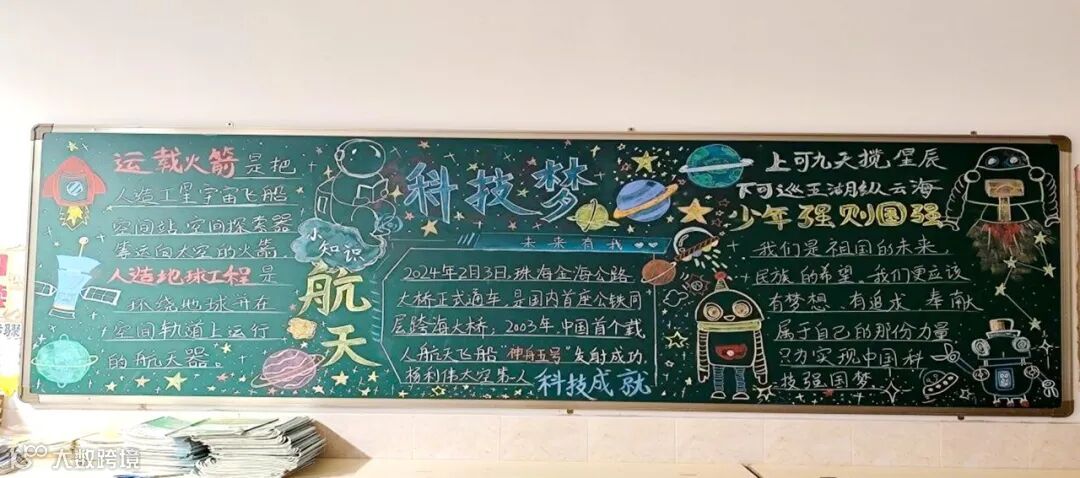 运载火箭是把
人造工星宇宙飞船
空间站,空间探索器
等运向太空的火箭
人造地球工程是
环绕地球并在
空间轨道上运行
的航天器。
小知识
航天
科技梦
未来有我
2024年2月3日,珠海金海公路
大桥正式通车,是国内首座公铁同
层跨海大桥,2003年,中国首个载
人航天飞船"神舟五号"发射成功,
杨利伟太空第一人
科技成就
上可九天揽星辰
下可巡五湖纵云海
少年强则国强
我们是祖国的未来
民族的希望。我们更应该
有梦想,有追求,奉献
属于自己的那份力量
只为实现中国科
技强国梦
大数跨境